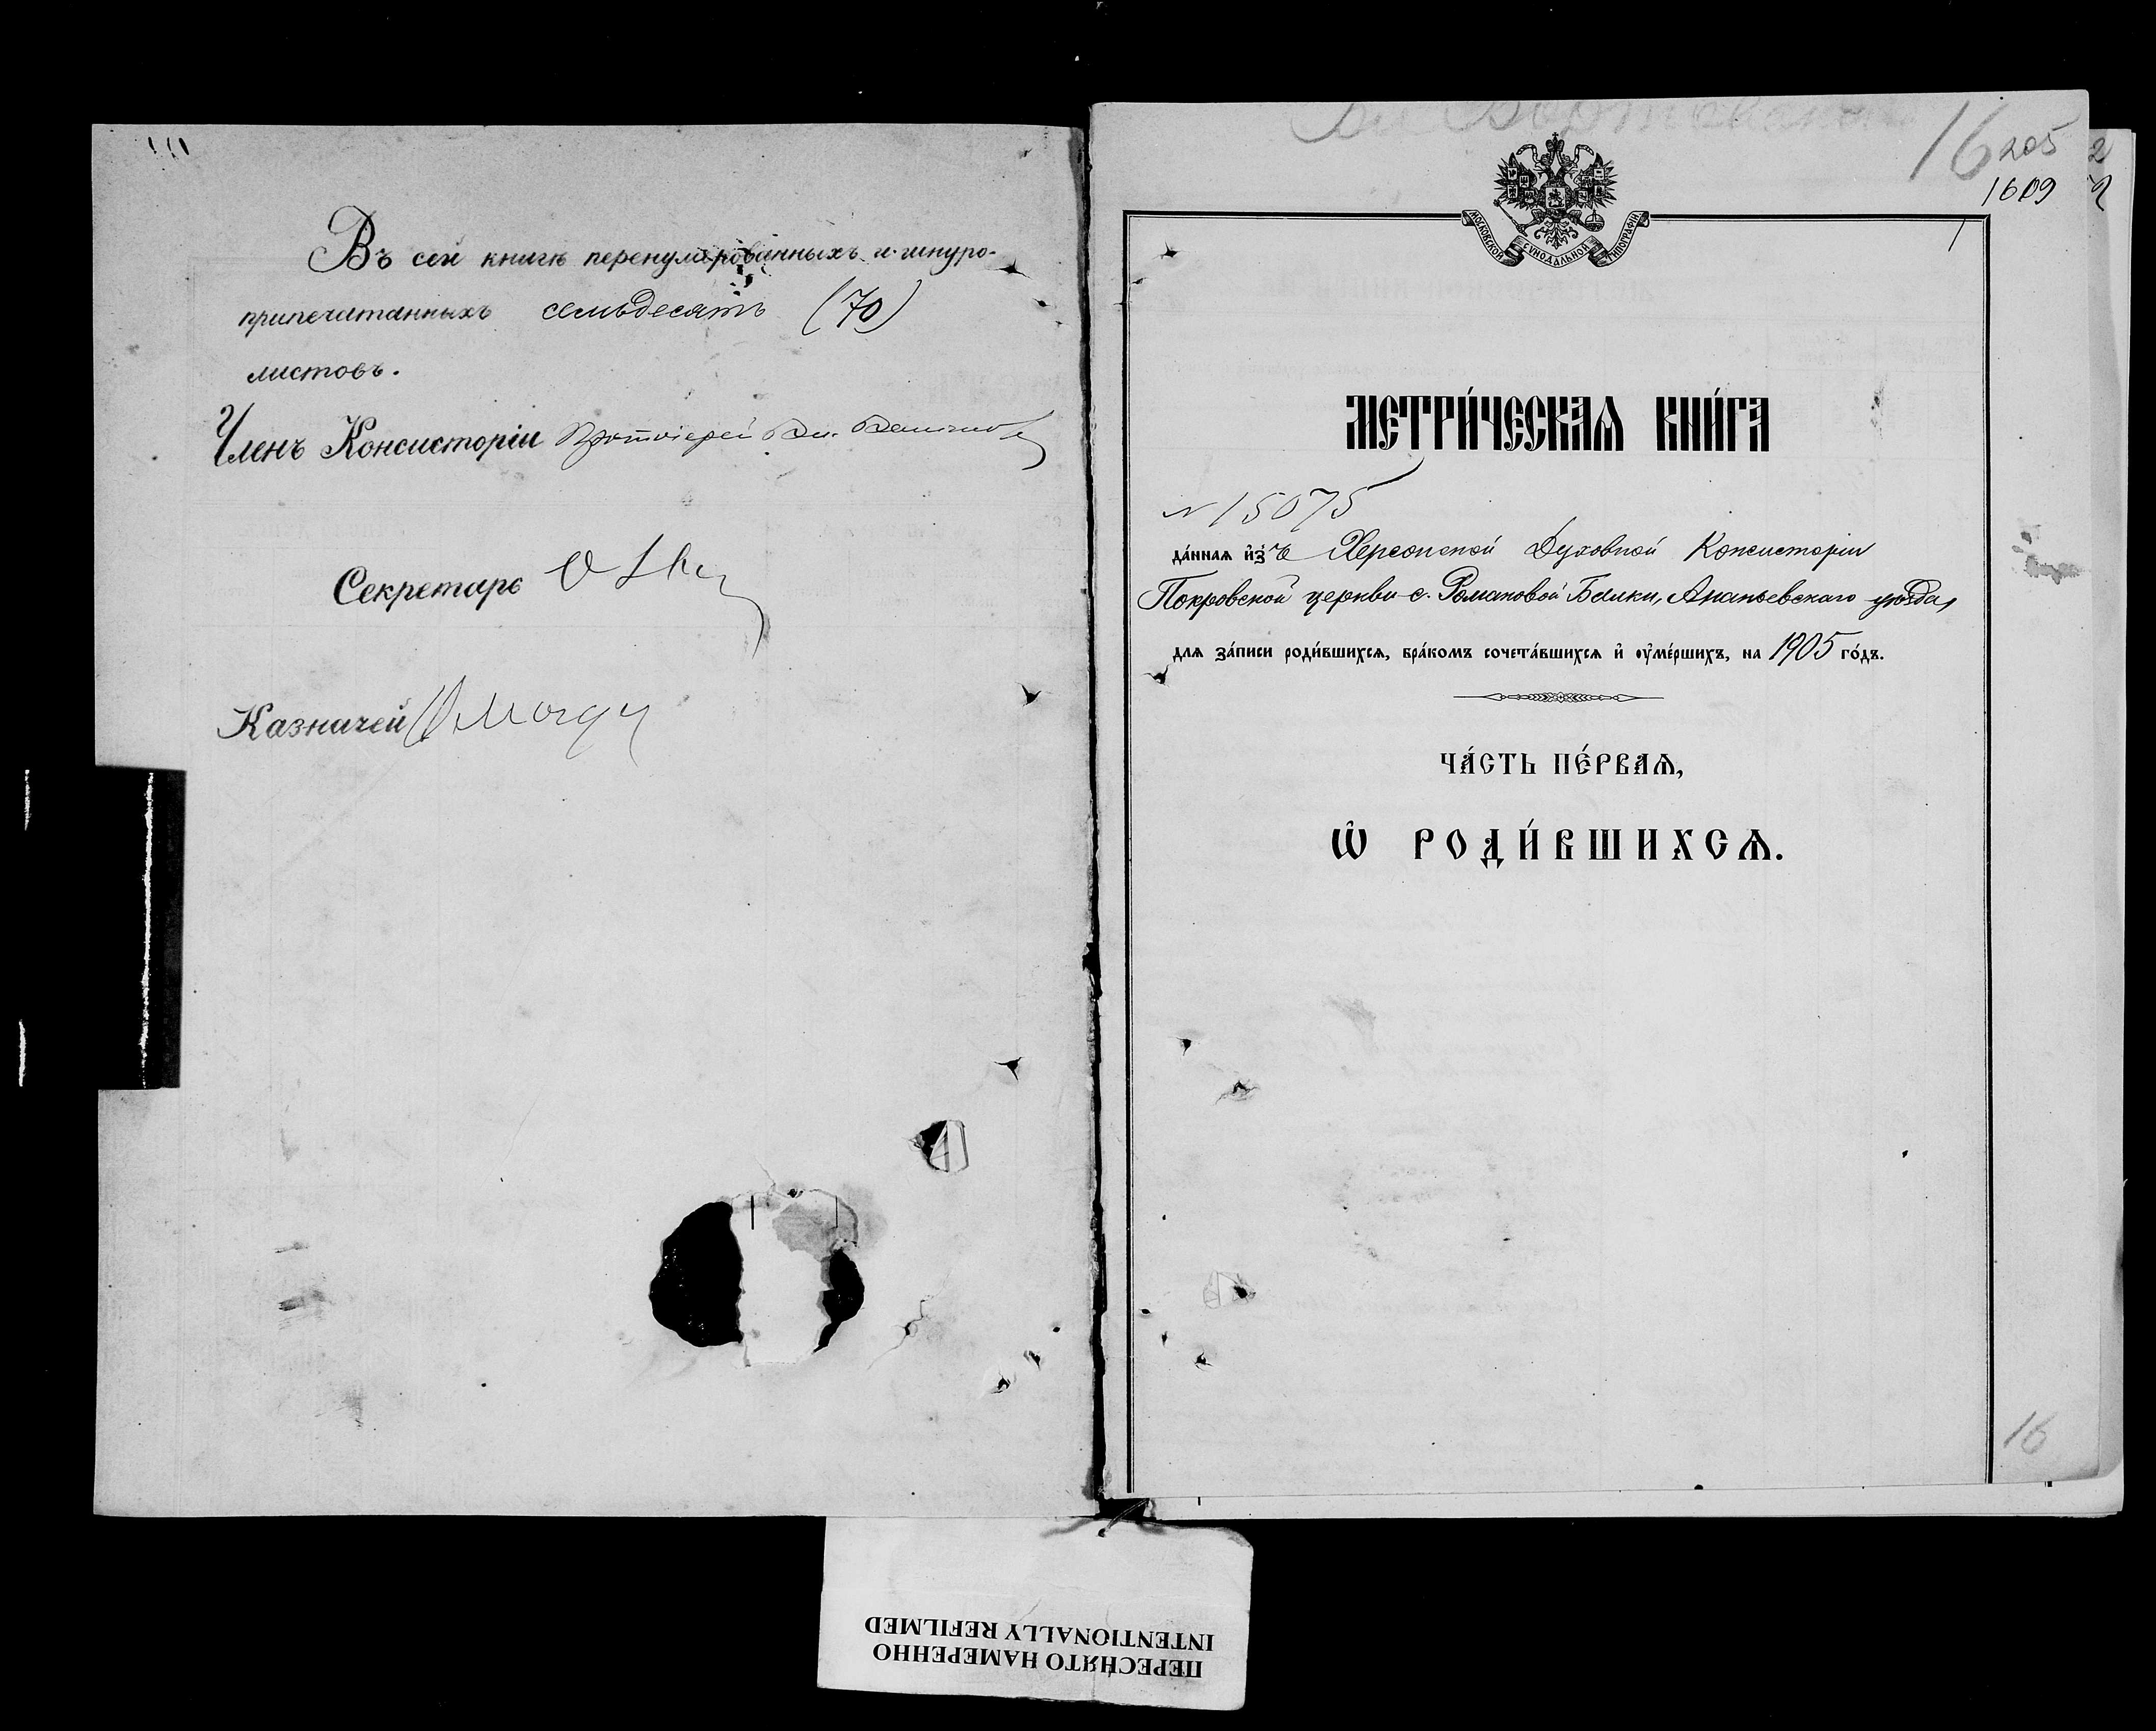 Въ сей книгѣ перенумерованныхъ и шнуро-
припечатанныхъ семьдесятъ (70)
листовъ.
Членъ Консисторіи Протоіерей
Секретарь
Казначей
16 205
1609
1
МОСКОВСКОЙ СѴНОДАЛЬНОЙ ТИПОГРАФІИ
МЕТРИ́ЧЕСКАѦ КНИ́ГА
N 15075
да́ннаѧ и҆зъ Херсонской Духовной Консисторіи
Покровской церкви с. Романовой Балки, Ананьевскаго уѣзда,
длѧ за́писи роди́вшихсѧ, бра́комъ сочета́вшихсѧ и҆ ᲂу҆ме́ршихъ, на 1905 го́дъ.
ЧА́СТЬ ПЕ́РВАѦ,
Ѽ РОДИ́ВШИХСѦ.
16
ПЕРЕСНЯТО НАМЕРЕННО
INTENTIONALLY REFILMED